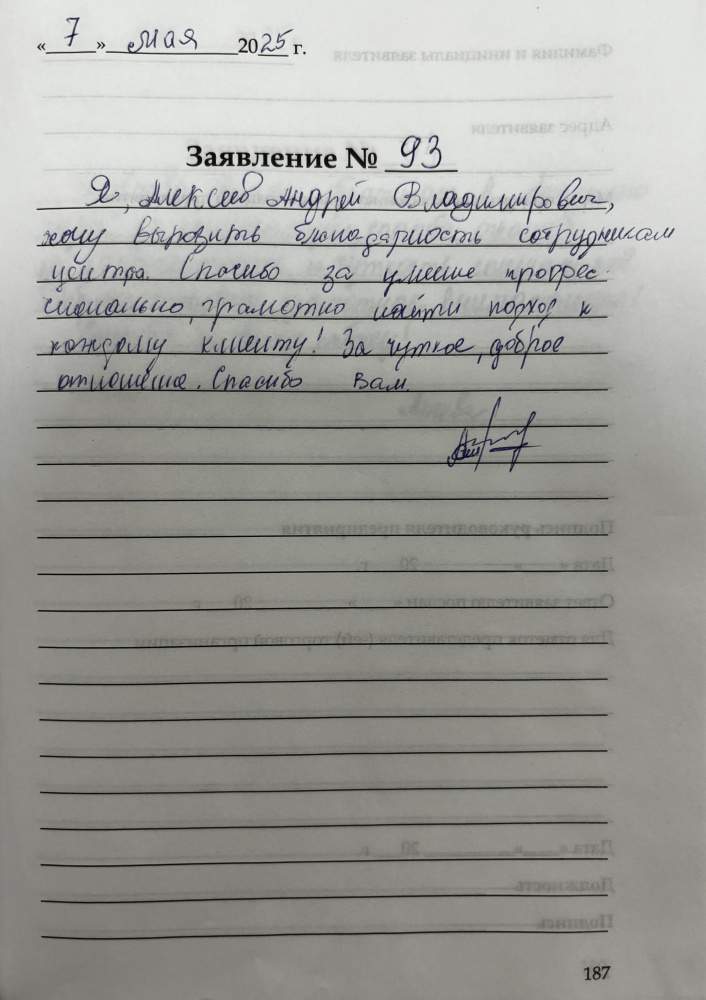 «7» мая 2025 г.
Заявление № 93
Я, Алексеев Андрей Владимирович,
хочу выразить благодарность сотрудникам
центра. Спасибо за умение профес-
сионально, грамотно найти подход к
каждому клиенту! За чуткое, доброе
отношение. Спасибо Вам.
187